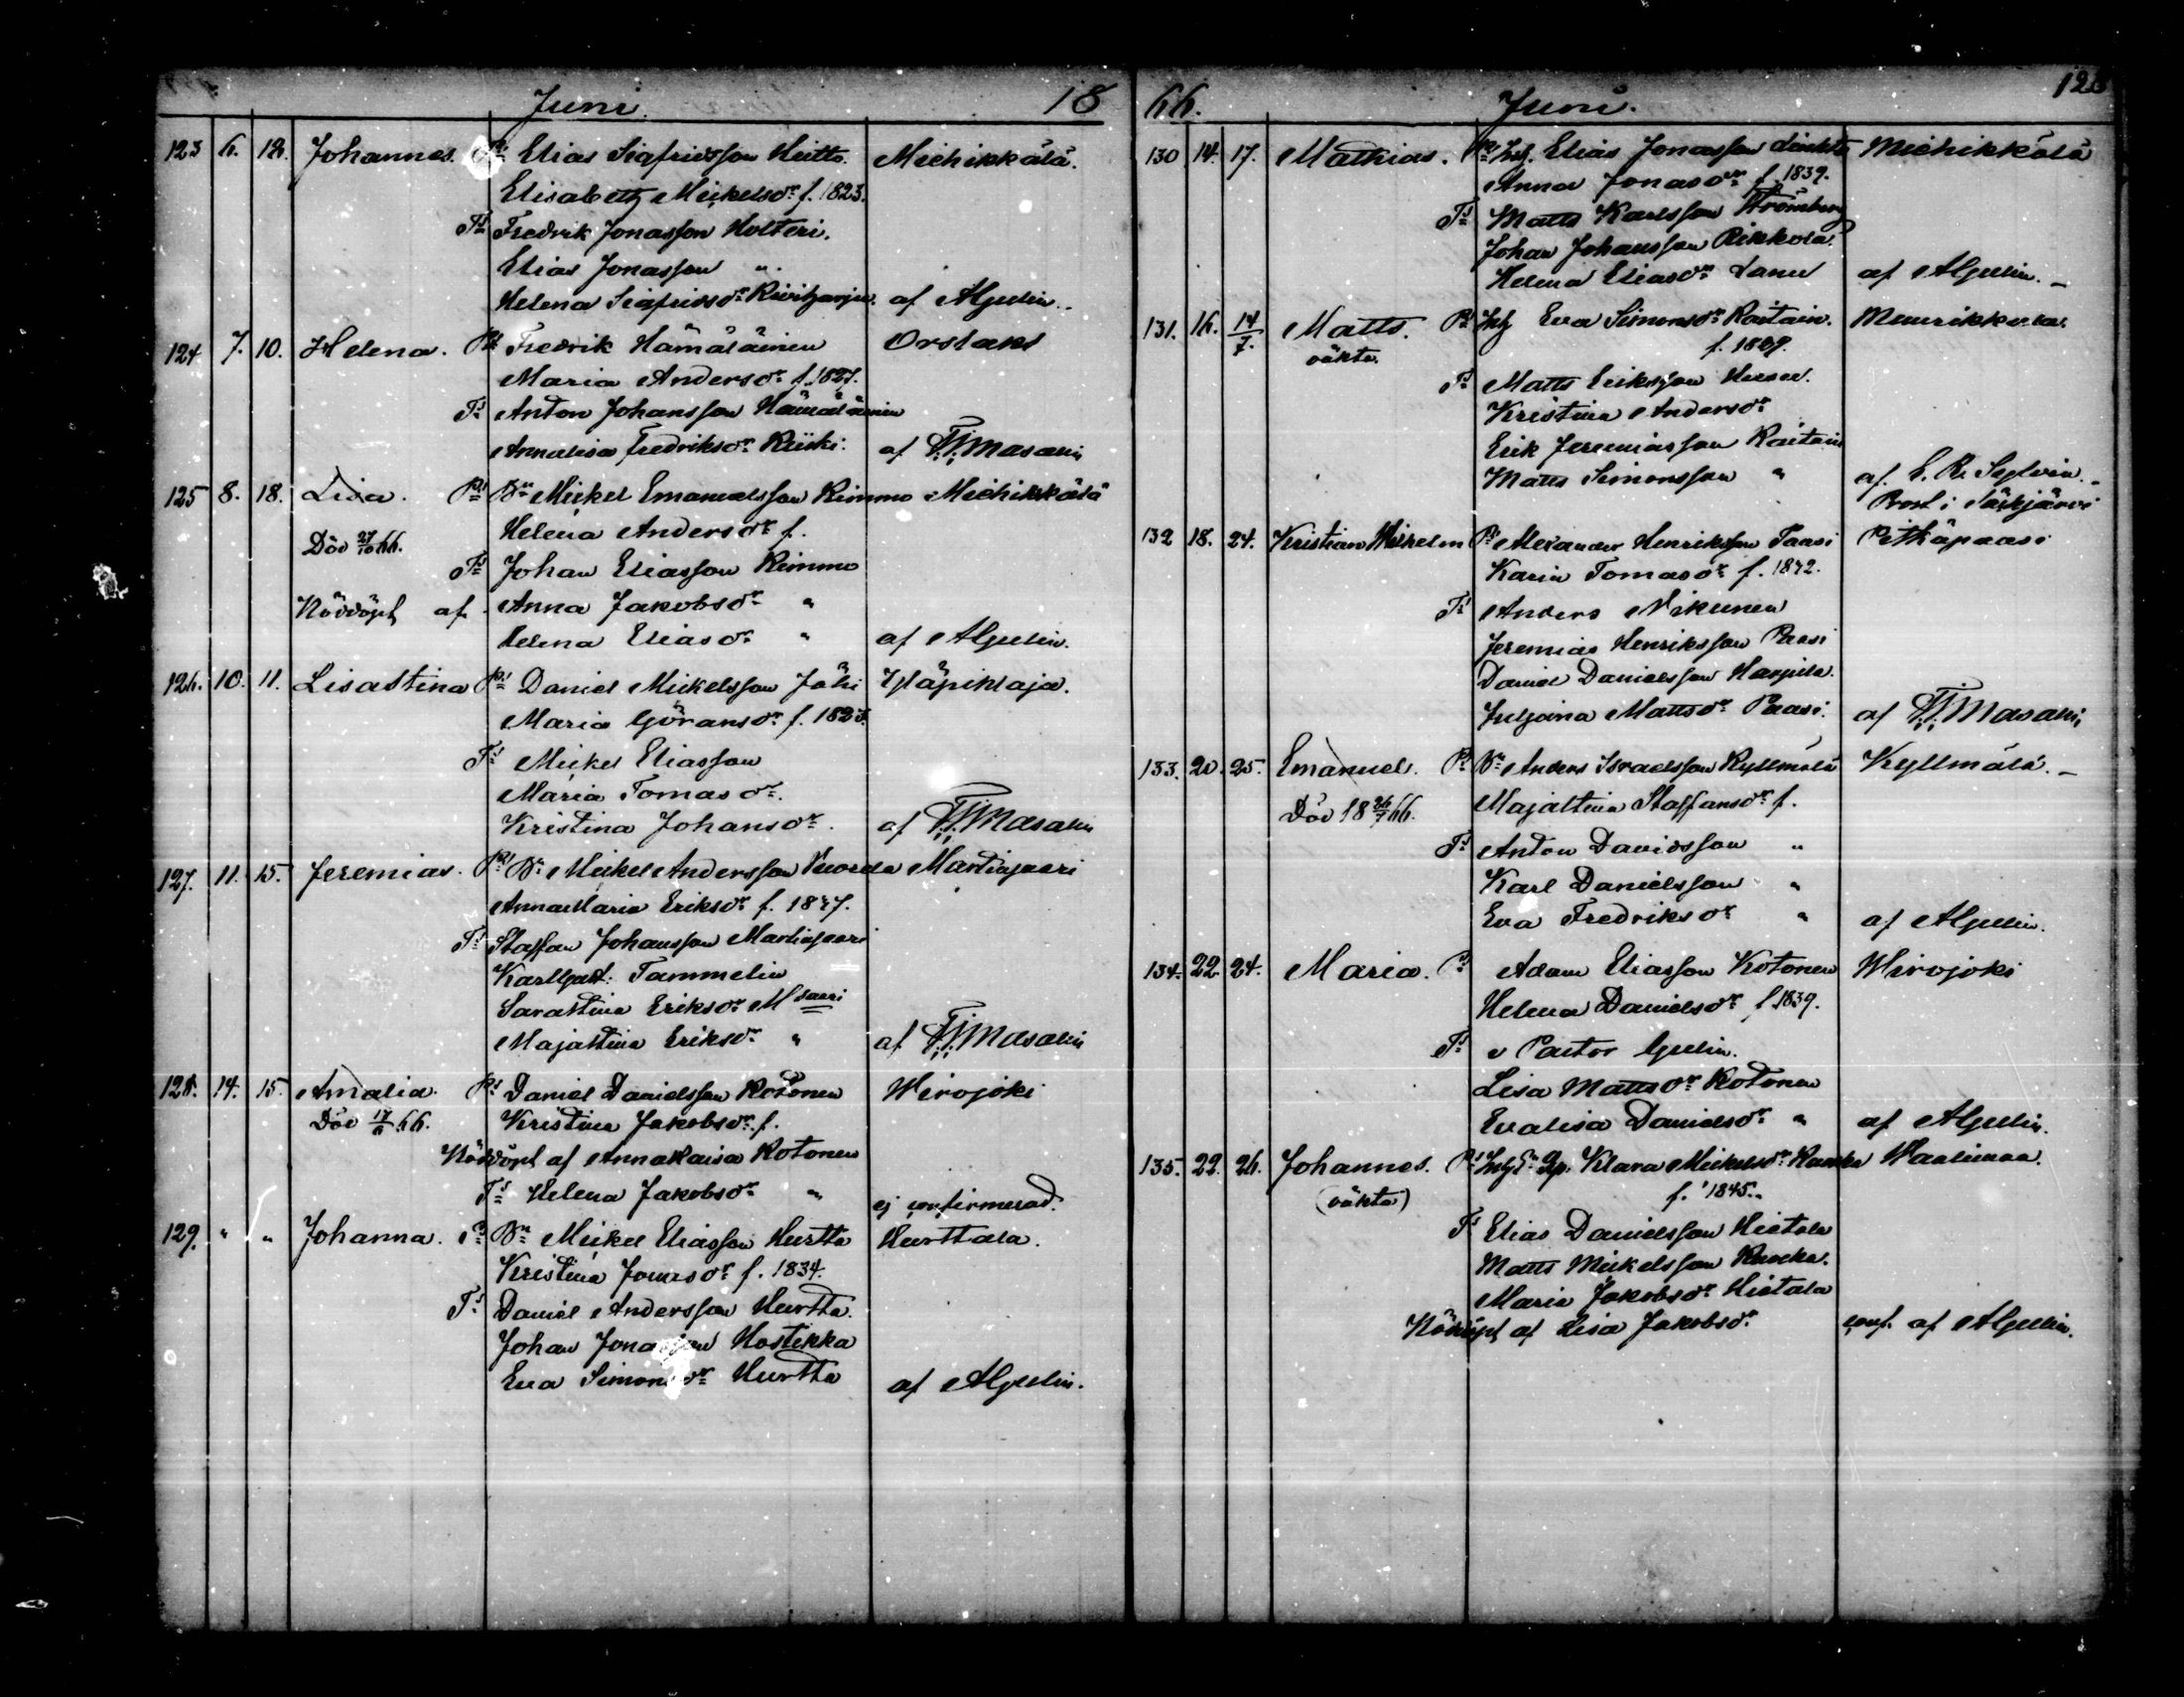 Juni. 18
123 6. 12. Johannes. Elias Sigfridsson Heitto. Miehikkälä.
Elisabeth Mickelsdr f. 1823.
Fs Fredrik Jonasson Holteri.
Elias Jonasson "
Helena Sigfridsdr af AGulin.
124 7. 10. Helena. Ps Fredrik Hämäläinen Orslaks
Maria Andersdr f. 1827.
Fs Anton Johansson Hämäläinen
Annalisa Fredriksdr Riiki. af Masalin
125 8. 18. Lisa. Ps Bn Mickel Emanuelsson Kimmo Miehikkälä
Helena Andersdr f.
Död 27/10 66.
Fs Johan Eliasson Kimmo
Nöddöpt af Anna Jakobsdr "
Helena Eliasdr " af AGulin.
126. 10. 11. Lisastina Ps Daniel Mickelsson Jähi Yläpihlaja.
Maria Göransdr f. 1823.
Fs Mickel Eliasson
Maria Tomasdr.
Kristina Johansdr. af Masalin
127. 11. 15. Jeremias. Ps Bn Mickel Andersson Vuorela Martinsaari
AnnaMaria Eriksdr f. 1847.
Fs Staffan Johansson Martinsaari
Karl Gust. Tammelin
Sarastina Eriksdr M saari
Majastina Eriksdr " af Masalin
128. 14. 15. Amalia. Ps Daniel Danielsson Kotonen Wirojoki
Död 17/6 66. Kristina Jakobsdr f.
Nöddöpt af AnnaKaisa Kotonen
Fs Helena Jakobsdr " ej confirmerad.
129. " " Johanna. Ps Bn Mickel Eliasson Hurtta Hurttala.
Kristina Jonasdr f. 1834.
Fs Daniel Andersson Hurtta.
Johan Jonasson Hostikka
Eva Simonsdr Hurtta af AGulin.
66. Juni.
130 14. 17. Mathias. Ps Inh. Elias Jonasson Miehikkälä
Anna Jonasdr f. 1839.
Fs Matts Karlsson Strömberg
Johan Johansson Rikkola.
Helena Eliasdr Lanu af AGulin.
131. 16. 14/7. Matts. Ps Inh Eva Simonsdr Raitain.
oäkta. f. 1839.
Fs Matts Eriksson
Kristina Andersdr
Erik Jeremiasson Raitain
Matts Simonsson " af
Prost i Säkjärvi
132 18. 24. Kristian Wilhelm Ps Alexander Henriksson Paasi Pitkäpaasi
Karin Tomasdr f. 1842.
Fs Anders Nikunen
Jeremias Henriksson Paasi
Daniel Danielsson Harjula.
Juljana Mattsdr Paasi. af Masalin
133. 20. 25. Emanuel. Ps Bn Anders Israelsson Kyllmälä Kyllmälä.
Död 18 26/7 66. Majastina Staffansdr f.
Fs Anton Davidsson "
Karl Danielsson "
Eva Fredriksdr " af AGulin.
134. 22. 24. Maria. Ps Adam Eliasson Kotonen Wirojoki
Helena Danielsdr f. 1839.
Fs v Pastor Gulin.
Lisa Mattsdr Kotonen
Evalisa Danielsdr " af AGulin.
135. 22. 26. Johannes. Ps Klara Mickelsdr Waalimaa.
(oäkta) f. 1845.
Fs Elias Danielsson Hietala
Matts Mickelsson
Maria Jakobsdr Hietala
Nöddöpt af Lisa Jakobsdr conf. af AGulin.